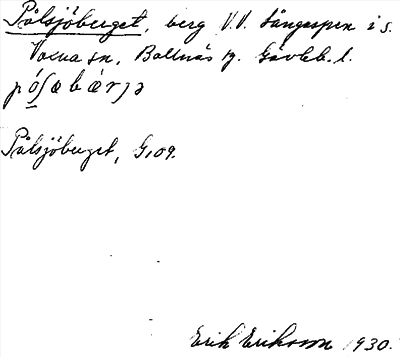 Pålsjöberget, berg V.V. Långaspen i s.
Voxna sn, Bollnäs tg. Gävleb. l.
pó̱ʃæ bærjə
Pålsjöberget, G.109.
Erik Eriksson 1930.